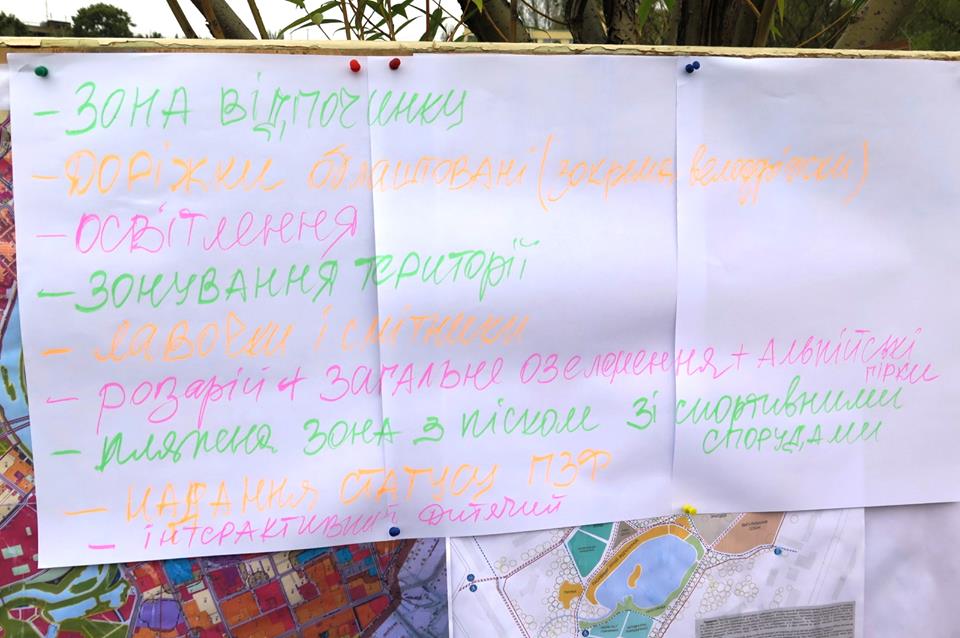 - ЗОНА ВІДПОЧИНКУ
- ДОРІЖКИ облаштовані (зокрема велодоріжки)
- ОСВІТЛЕННЯ
- ЗОНУВАННЯ території
- ЛАВОЧКИ і смітники
- розарій + ЗАГАЛЬНЕ озеленення + Альпійські
гірки
- пляжна ЗОНА з піском зі спортивними
спорудами
- НАДАННЯ СТАТУСУ ПЗФ
- інтерактивний дитячий